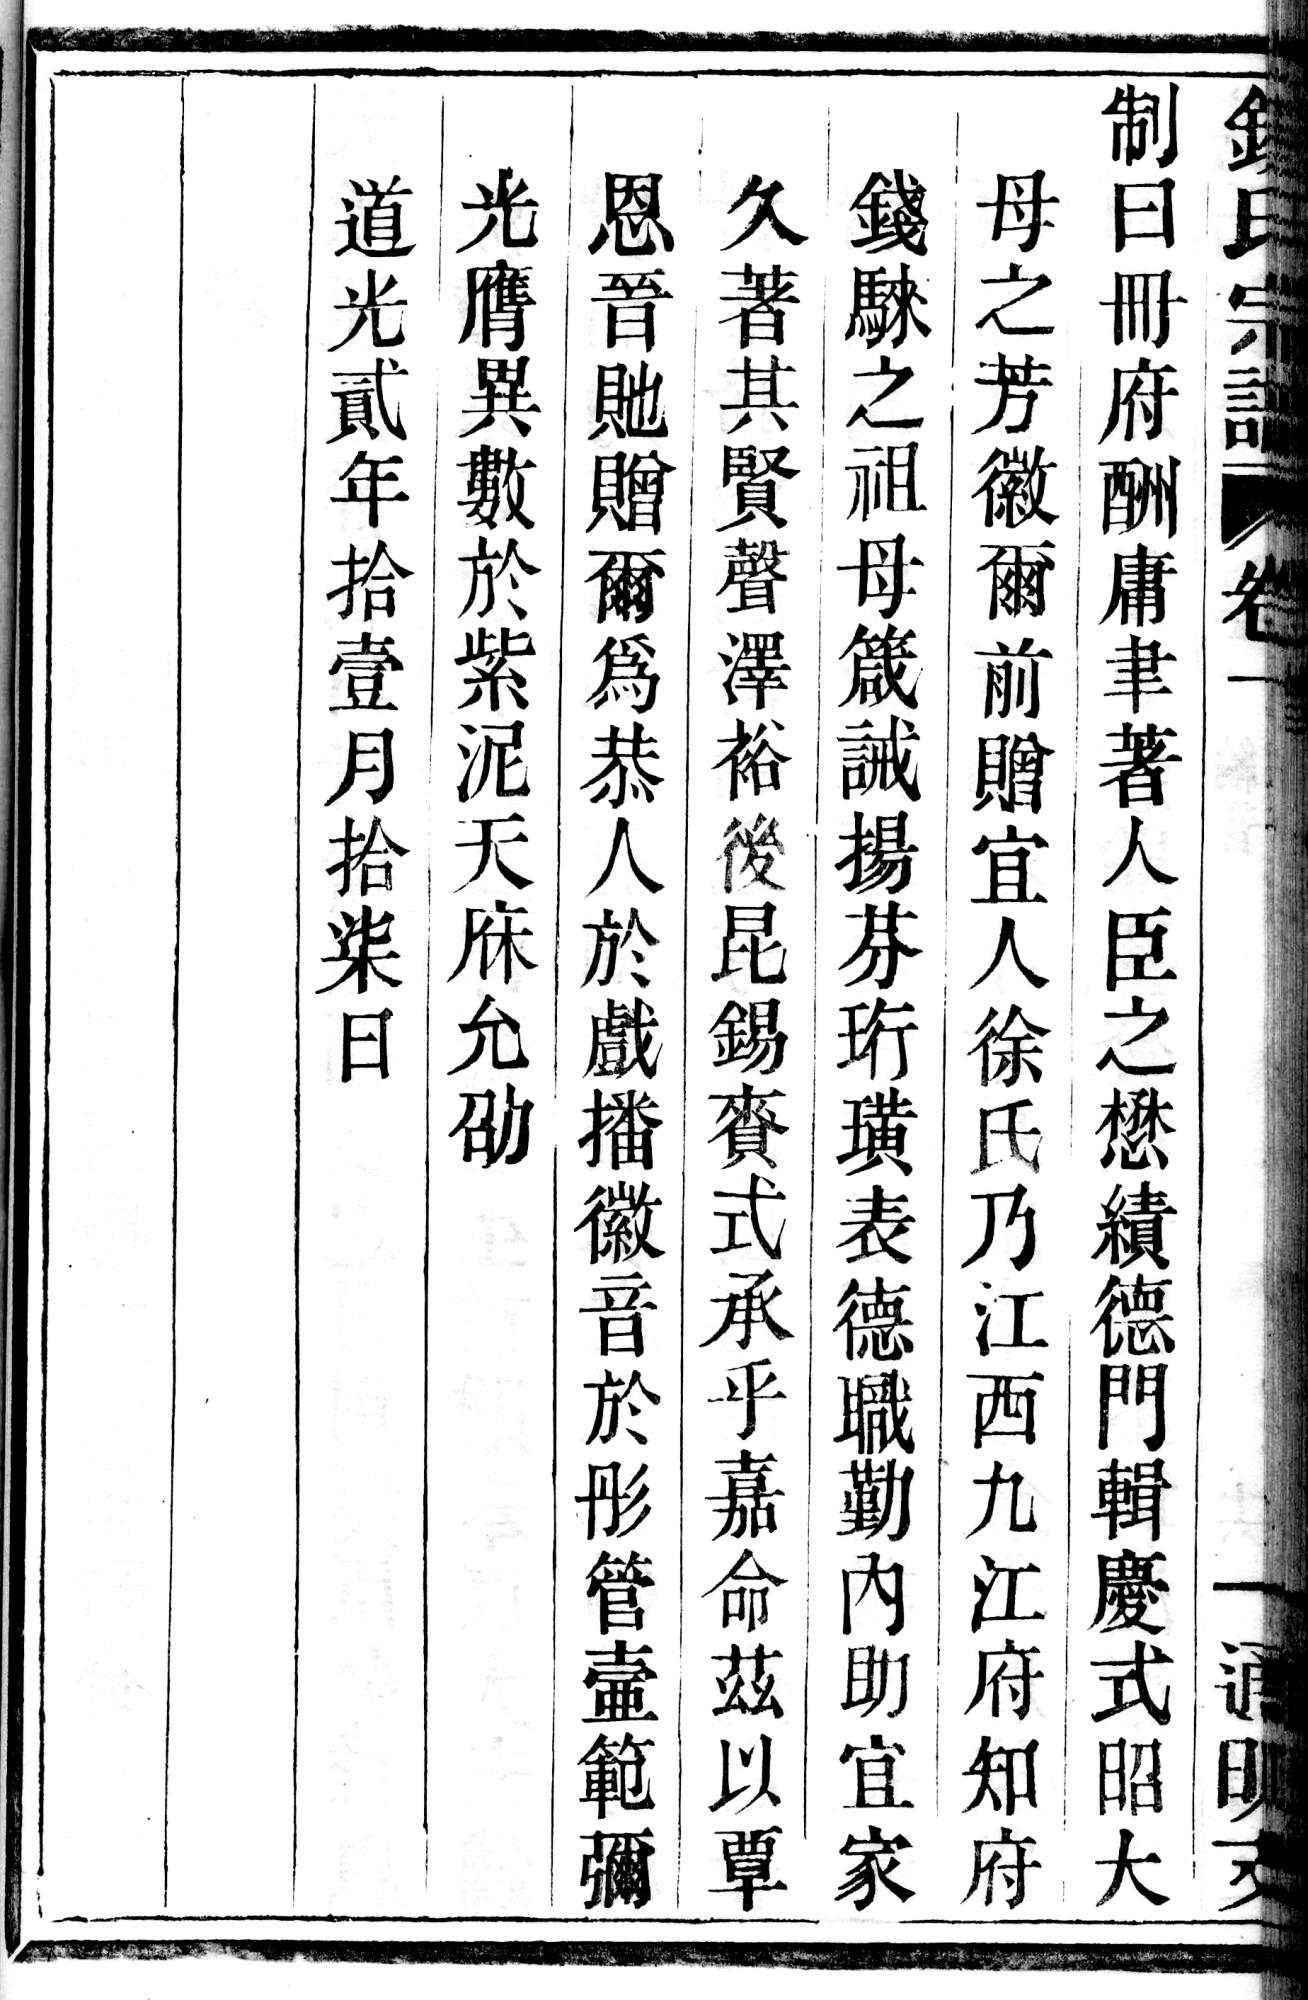 錢氏宗譜 卷一
制曰冊府酬庸聿著人臣之懋績德門輯慶式昭大
母之芳徽爾前贈宜人徐氏乃江西九江府知府
錢騋之祖母箴誡揚芬珩璜表德職勤內助宜家
久著其賢聲澤裕後昆錫賚式承乎嘉命茲以覃
恩晉貤贈爾爲恭人於戲播徽音於彤管壼範彌
光膺異數於紫泥天庥允劭
道光貳年拾壹月拾柒日